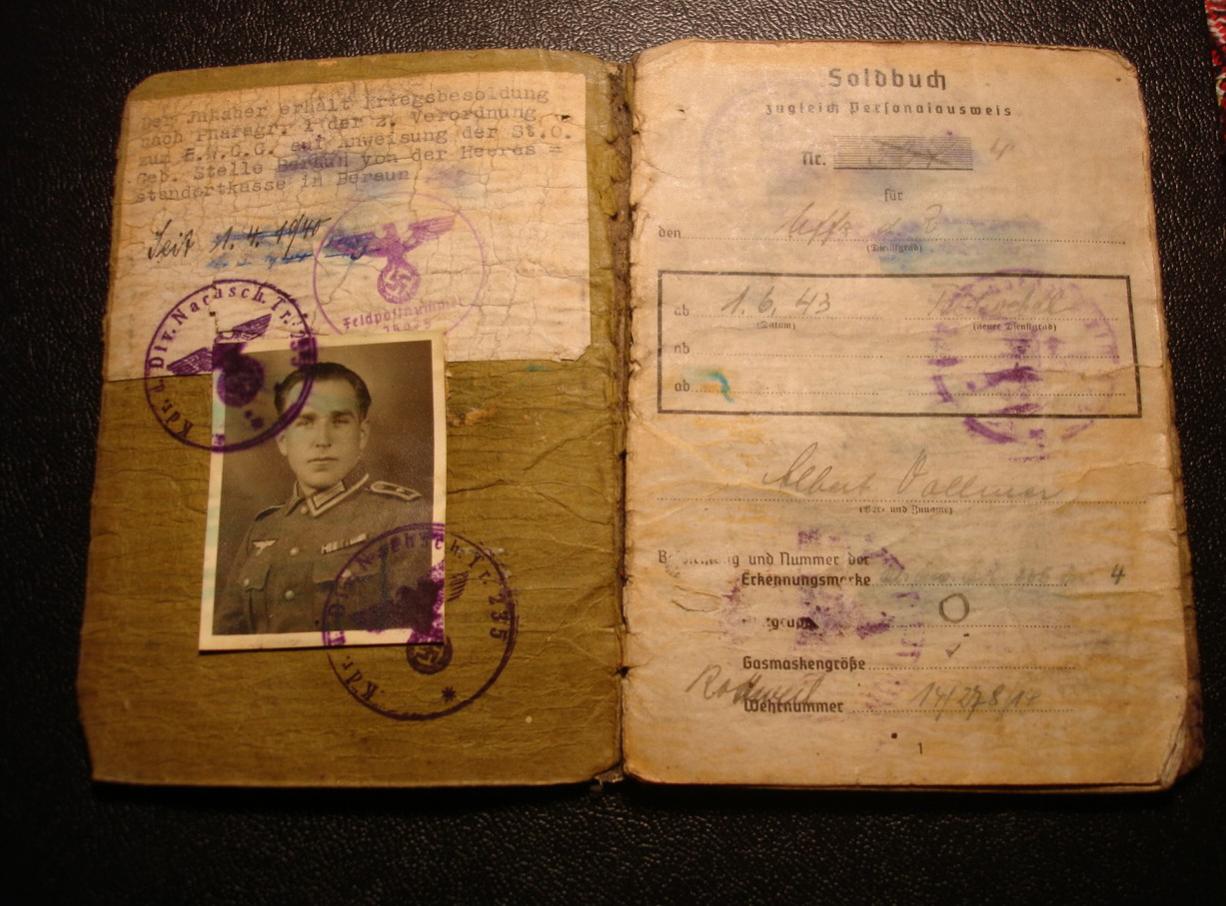 Der Jnhaber erhält Kriegsbesoldung
nach Pharagr. 1 der 2. Verordnung
zum E.W.G.G. auf Anweisung der St.O.
Geb. Stelle Beraun von der Heeres =
standortkasse in Beraun.
Seit 1. 4. 1940
Feldpostnummer
Kdr. d. Div. Nachsch. Tr. 235
Kdr. d. Div. Nachsch. Tr. 235
Soldbuch
zugleich Personalausweis
Nr. 4
für
den Uffz
(Dienstgrad)
ab 1. 6. 43
(Datum) (neuer Dienstgrad)
ab
ab
Albert Vollmer
(Vor- und Zuname)
und Nummer der
Erkennungsmarke 4
Gasmaskengröße
Rottweil
Wehrnummer
1